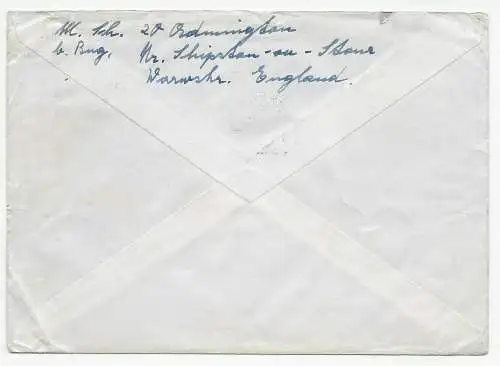 M. Sch. 20 Ordmington
b. Bug, Nr. Shipston-on-Stour
Warwshr. England.